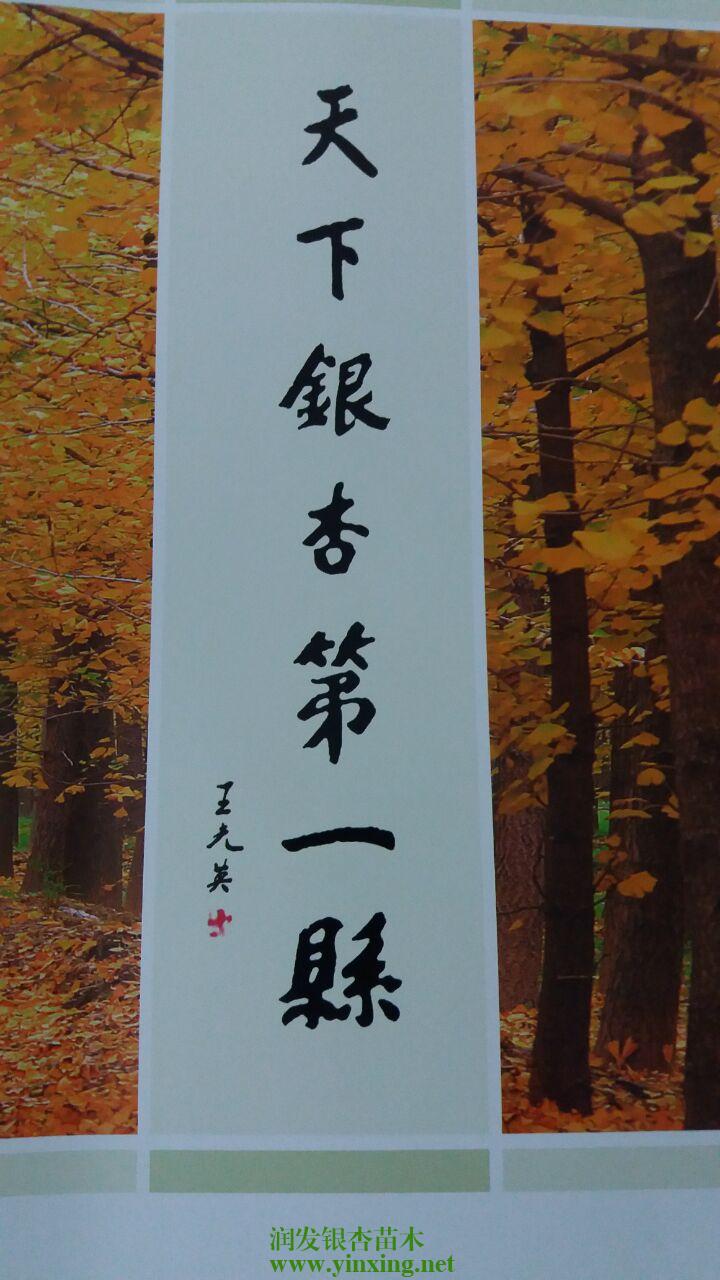 天下銀杏第一縣
王光英
润发银杏苗木
www.yinxing.net